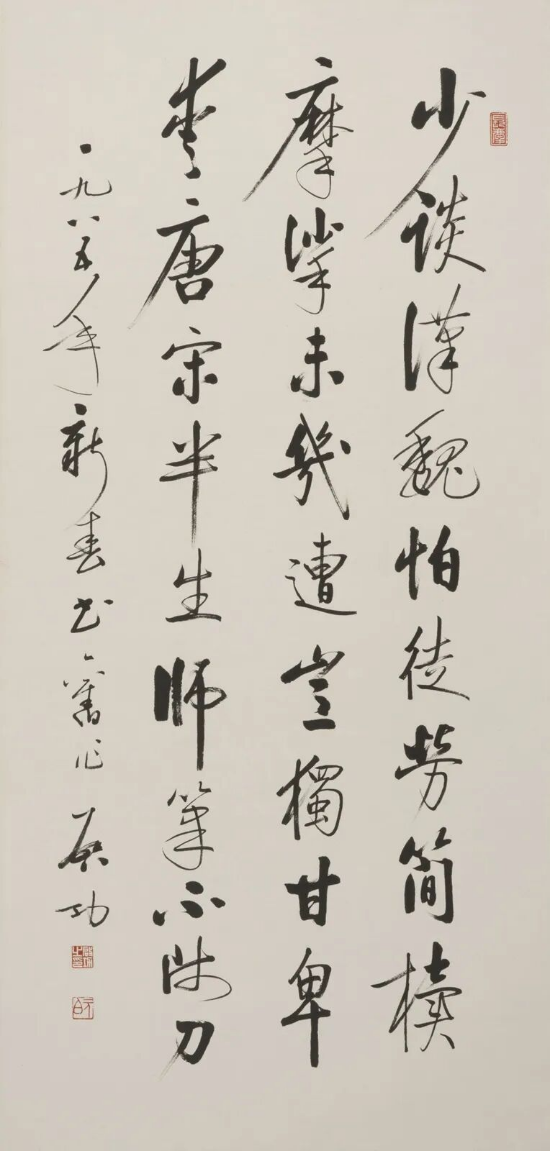 少談漢魏怕徒勞簡牘
摩挲未幾遭豈獨甘卑
愛唐宋半生師筆不師刀
一九八五年新春書舊作 啟功